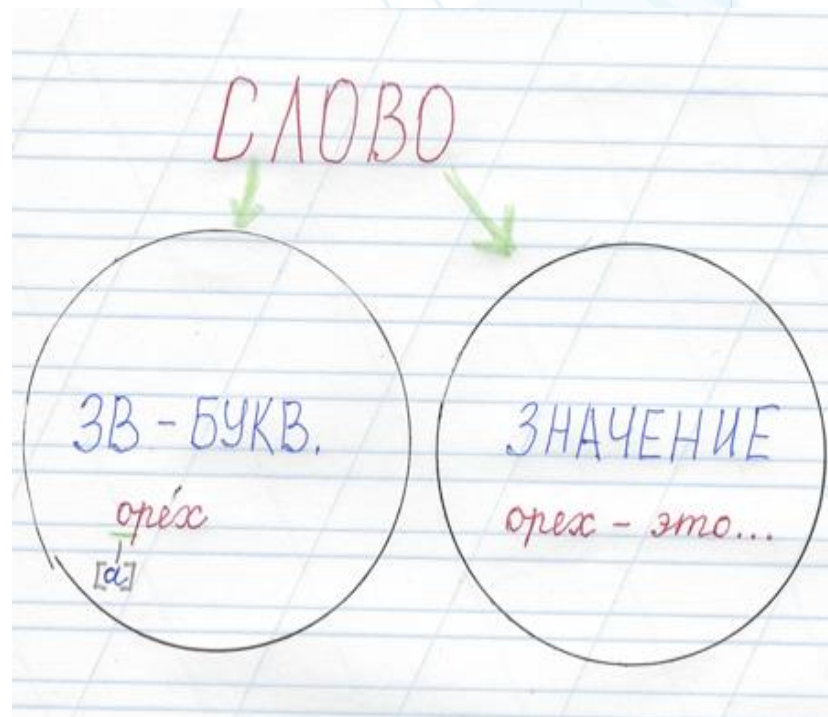 СЛОВО
ЗВ - БУКВ.
оре́х
[а]
ЗНАЧЕНИЕ
орех - это...